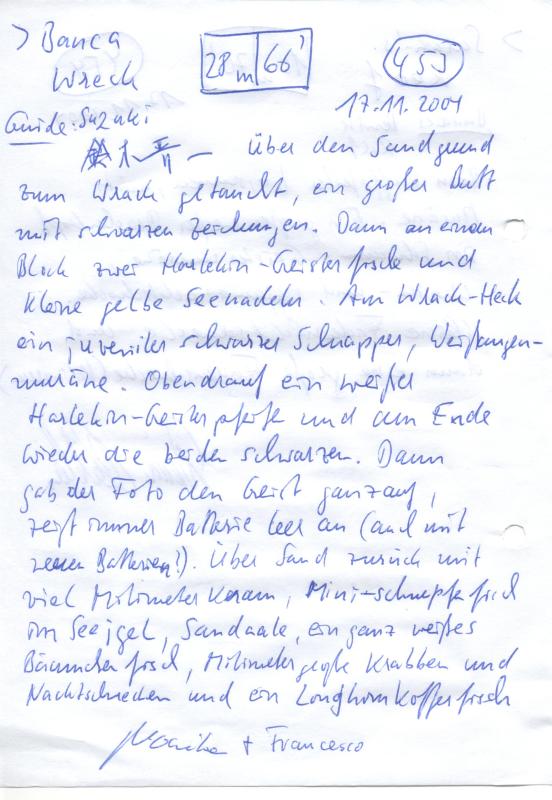 > Banca
Wreck
28 m | 66'
453
17.11.2001
Guide: Suzuki
鈴木晋一 Über den Sandgrund
zum Wrack getaucht, ein großer Butt
mit schwarzen Zeichnungen. Dann an einem
Block zwei Harlekin-Geisterfische und
kleine gelbe Seenadeln. Am Wrack-Heck
ein juveniler schwarzer Schnapper, Weißaugen-
muräne. Obendrauf ein weißer
Harlekin-Geisterpfeife und am Ende
wieder die beiden schwarzen. Dann
gab der Foto den Geist ganz auf,
zeigt immer Batterie leer an (auch mit
neuen Batterien!). Über Sand zurück mit
viel Milimeter Kram, Mini-schnepfefisch
im Seeigel, Sandaale, ein ganz weißes
Bäumchenfisch, Milimeter große Krabben und
Nachtschnecken und ein Longhornkofferfisch
Monika + Francesco